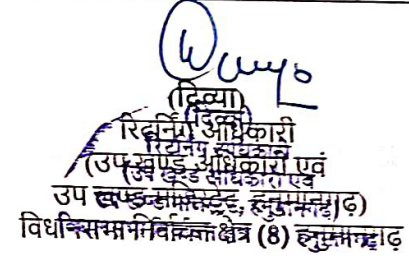 (दिव्या)
रिटर्निंग अधिकारी
(उप खण्ड अधिकारी एवं
उप खण्ड मजिस्ट्रेट, हनुमानगढ़)
विधानसभा निर्वाचन क्षेत्र (8) हनुमानगढ़